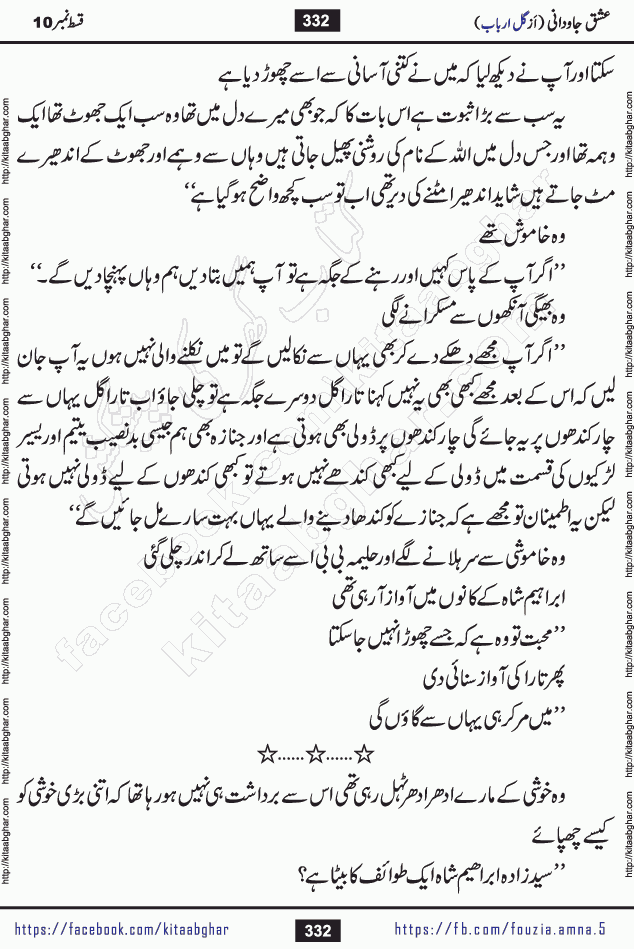 عشق جاودانی (از گل ارباب)
332
قسط نمبر 10
سکتا اور آپ نے دیکھ لیا کہ میں نے کتنی آسانی سے اسے چھوڑ دیا ہے
یہ سب سے بڑا ثبوت ہے اس بات کا کہ جو بھی میرے دل میں تھا وہ سب ایک جھوٹ تھا ایک
وہمہ تھا اور جس دل میں اللہ کے نام کی روشنی پھیل جاتی ہیں وہاں سے وہمے اور جھوٹ کے اندھیرے
مٹ جاتے ہیں شاید اندھیرا مٹنے کی دیر تھی اب تو سب کچھ واضح ہو گیا ہے‘‘
وہ خاموش تھے
’’اگر آپ کے پاس کہیں اور رہنے کے جگہ ہے تو آپ ہمیں بتا دیں ہم وہاں پہنچا دیں گے۔‘‘
وہ بھیگی آنکھوں سے مسکرانے لگی
’’اگر آپ مجھے دھکے دے کر بھی یہاں سے نکالیں گے تو میں نکلنے والی نہیں ہوں یہ آپ جان
لیں کہ اس کے بعد مجھے کبھی بھی یہ نہیں کہنا تارا گل دوسرے جگہ ہے تو چلی جاؤ اب تارا گل یہاں سے
چار کندھوں پر یہ جائے گی چار کندھوں پر ڈولی بھی ہوتی ہے اور جنازہ بھی ہم جیسی بدنصیب یتیم اور یسیر
لڑکیوں کی قسمت میں ڈولی کے لیے کبھی کندھے نہیں ہوتے تو کبھی کندھوں کے لیے ڈولی نہیں ہوتی
لیکن یہ اطمینان تو مجھے ہے کہ جنازے کو کندھا دینے والے یہاں بہت سارے مل جائیں گے‘‘
وہ خاموشی سے سر ہلانے لگے اور حلیمہ بی بی اسے ساتھ لے کر اندر چلی گئی
ابراہیم شاہ کے کانوں میں آواز آ رہی تھی
’’محبت تو وہ ہے کہ جسے چھوڑا نہیں جا سکتا
پھر تارا کی آواز سنائی دی
’’میں مر کر ہی یہاں سے گاؤں گی
☆......☆......☆
وہ خوشی کے مارے ادھر ادھر ٹہل رہی تھی اس سے برداشت ہی نہیں ہو رہا تھا کہ اتنی بڑی خوشی کو
کیسے چھپائے
’’سید زادہ ابراھیم شاہ ایک طوائف کا بیٹا ہے؟
https://facebook.com/kitaabghar
332
https://fb.com/fouzia.amna.5
http://kitaabghar.com
کتاب گھر کی پیشکش
facebook.com/kitaabghar
kitaabghar.com